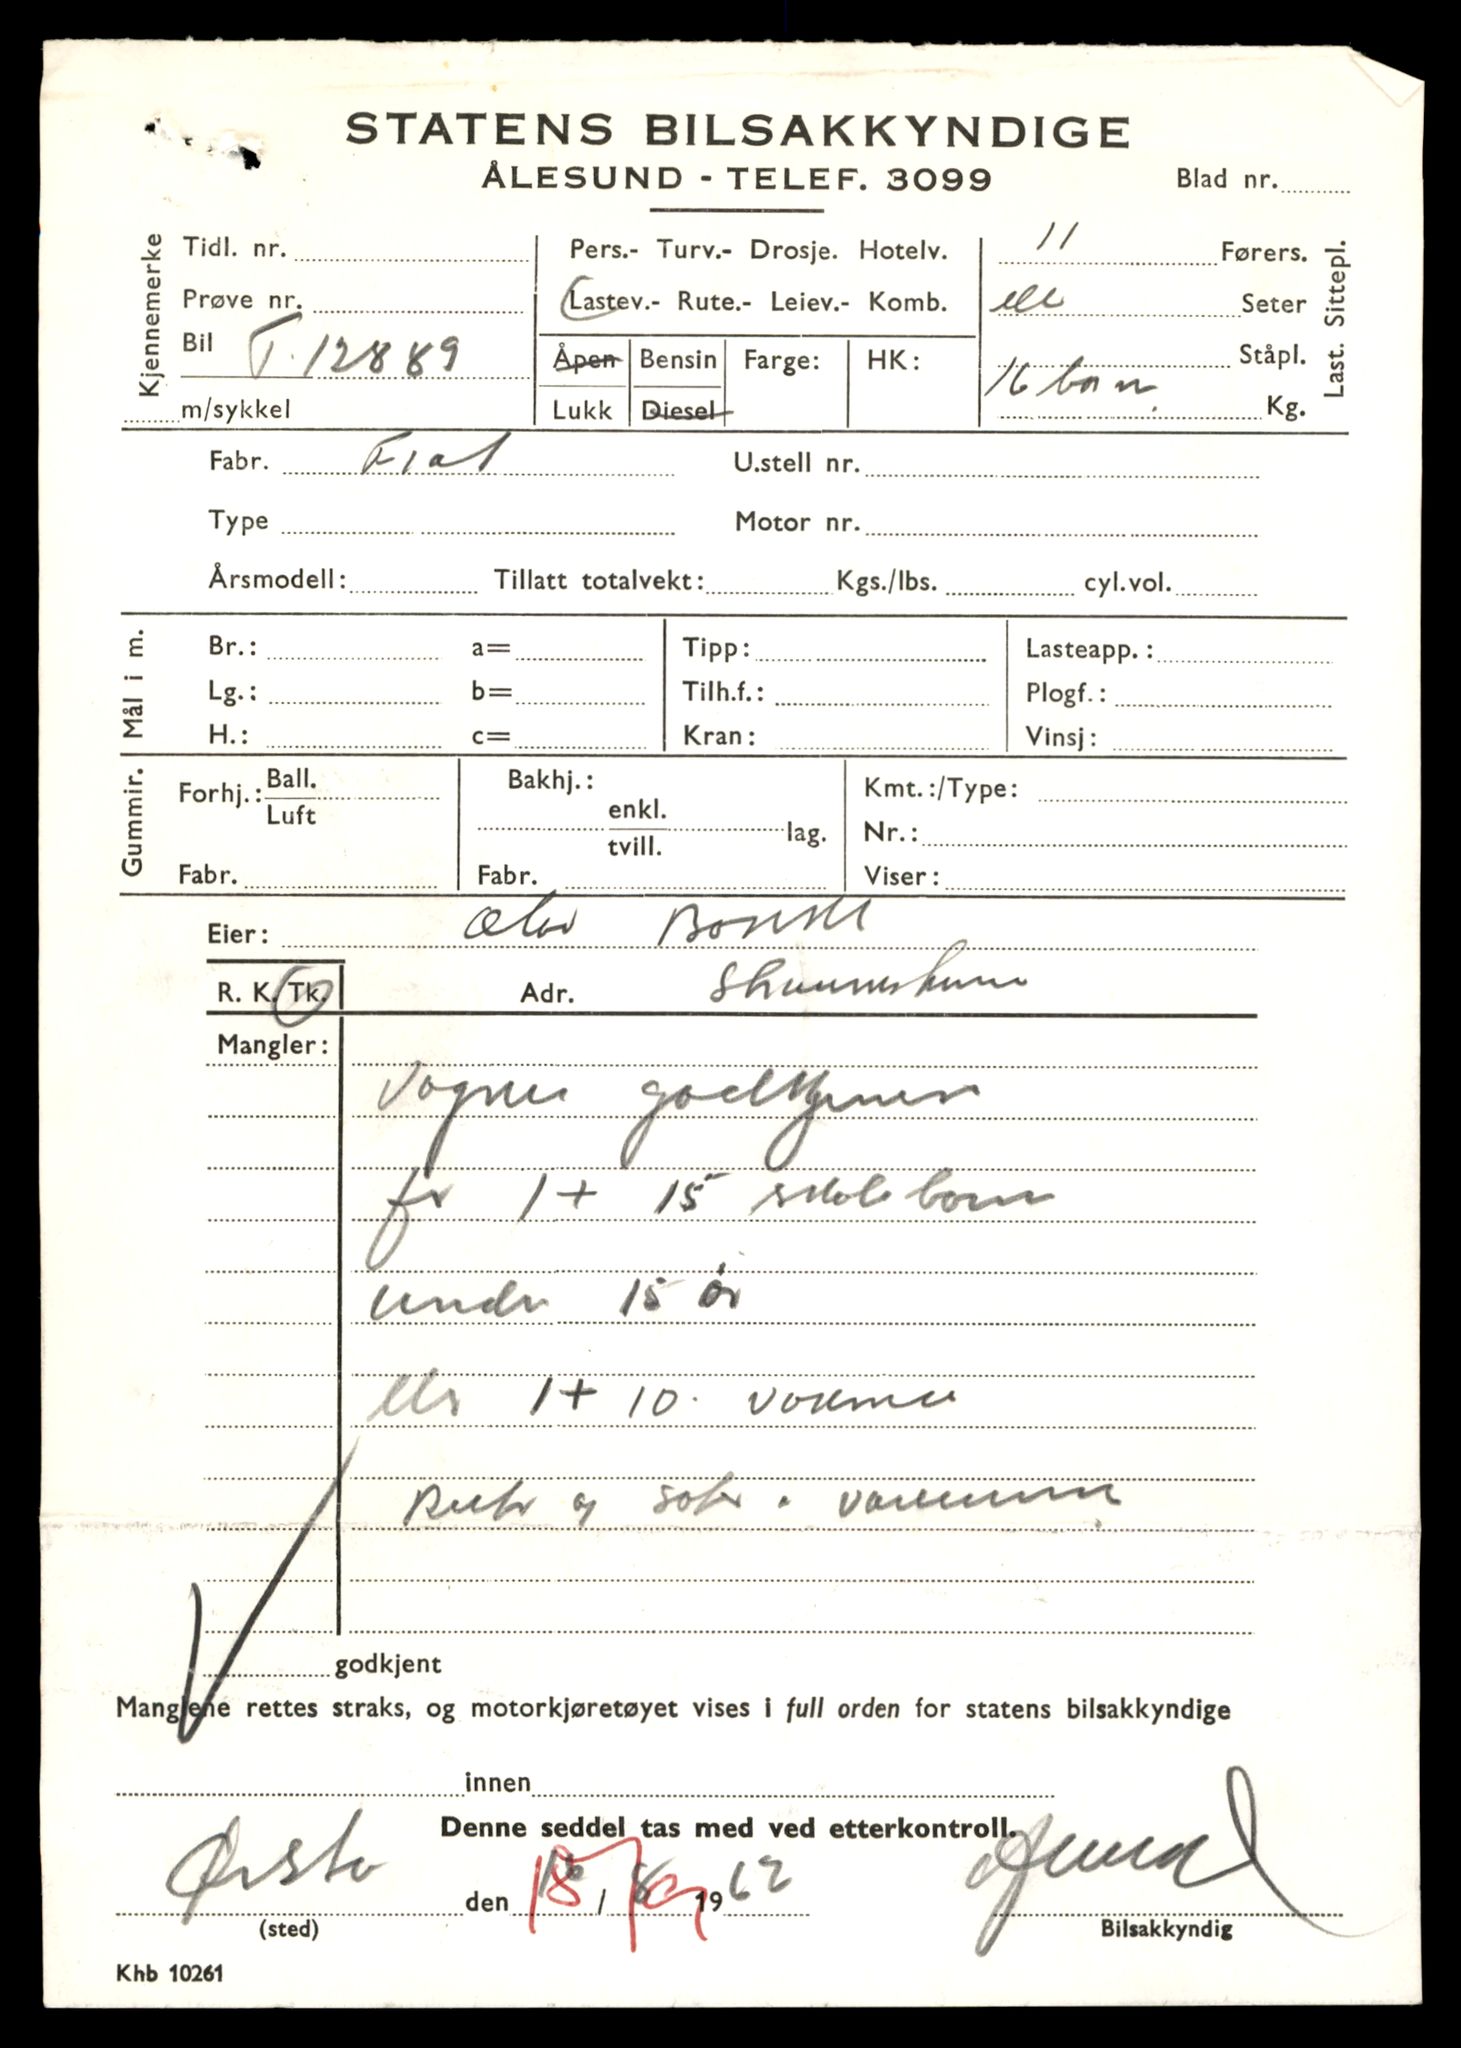 STATENS BILSAKKYNDIGE
ÅLESUND - TELEF. 3099
Blad nr.
Kjennemerke
Tidl. nr.
Prøve nr.
Bil T. 12889
m/sykkel
Pers.- Turv.- Drosje. Hotelv.
Lastev.- Rute.- Leiev.- Komb.
Åpen Bensin Farge: HK:
Lukk Diesel
11 Førers.
Seter
Ståpl.
16 barn. Kg.
Last. Sittepl.
Fabr. Fiat U.stell nr.
Type Motor nr.
Årsmodell: Tillatt totalvekt: Kgs./lbs. cyl.vol.
Mål i m.
Br.: a= Tipp: Lasteapp.:
Lg.: b= Tilh.f.: Plogf.:
H.: c= Kran: Vinsj:
Gummir.
Forhj.: Ball. Luft
Fabr.
Bakhj.:
enkl.
tvill.
lag.
Fabr.
Kmt.:/Type:
Nr.:
Viser:
Eier: Olav
R. K. Tk. Adr.
Mangler:
Vognen godkjennes
for 1+ 15 skolebarn
under 15 år
eller 1+ 10. voksne
og
godkjent
Manglene rettes straks, og motorkjøretøyet vises i full orden for statens bilsakkyndige
innen
Denne seddel tas med ved etterkontroll.
Ørsta den 18/ 1962
(sted) Bilsakkyndig
Khb 10261